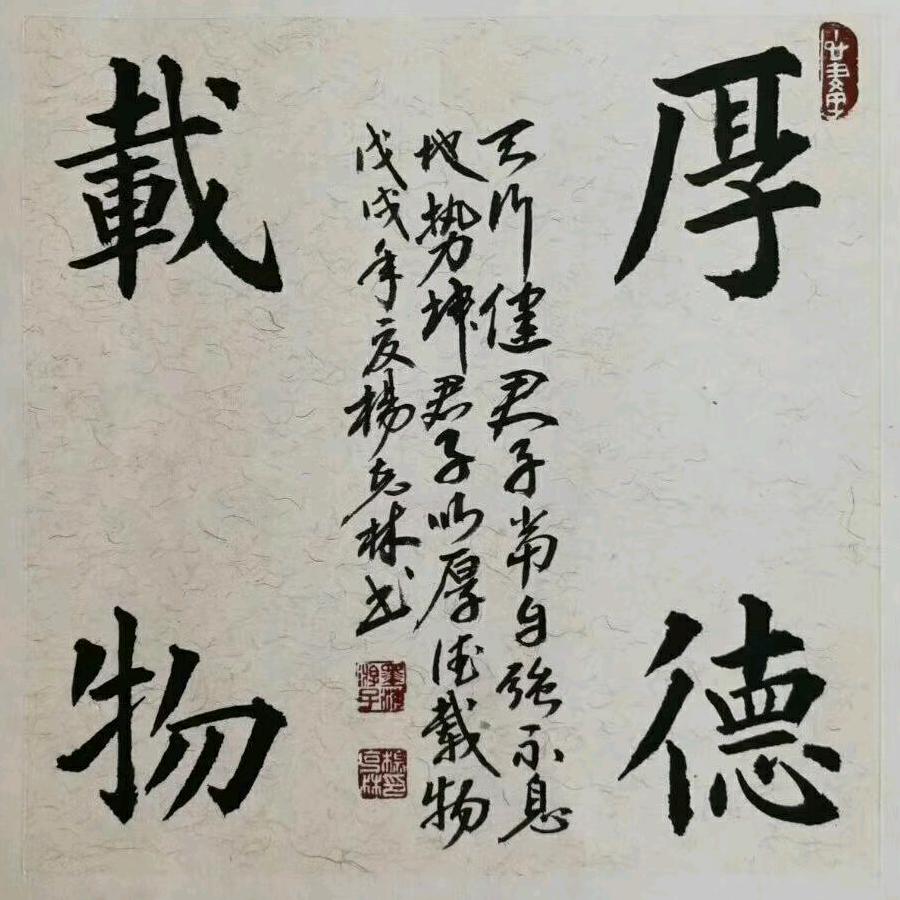 厚德
天行健君子常自強不息
地势坤君子以厚德載物
戊戌年夏楊林书
載物